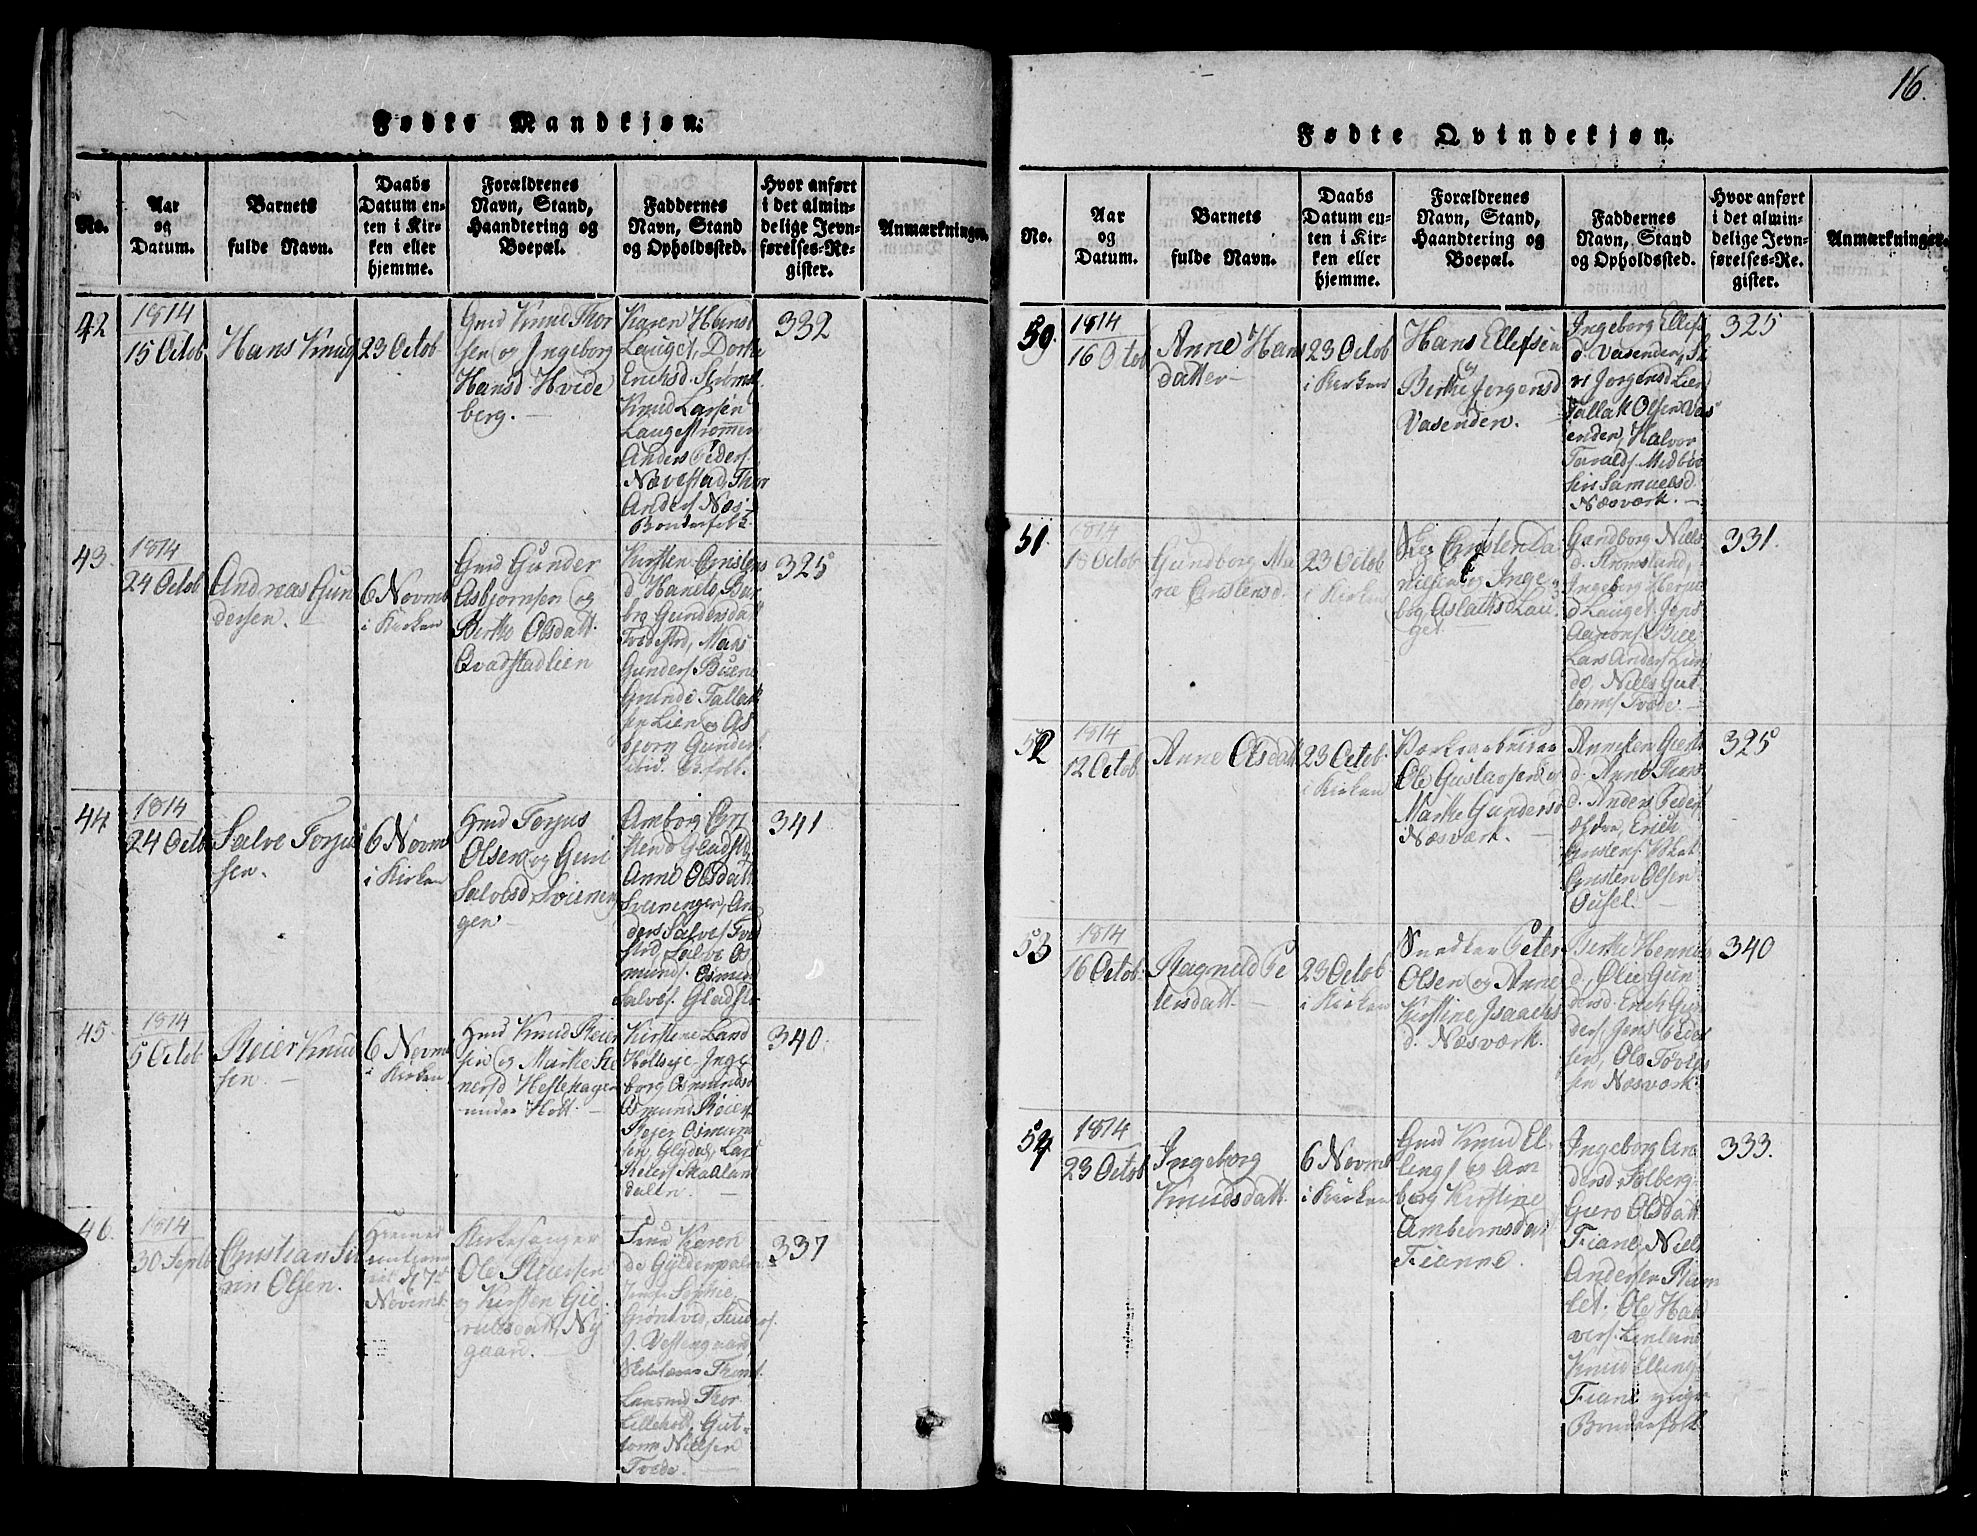 16.
Fødte Mandkjøn.
No.
Aar
og
Datum.
Barnets
fulde Navn.
Daabs
Datum en-
ten i Kir-
ken eller
hjemme.
Forældrenes
Navn, Stand,
Haandtering og
Boepæl.
Faddernes
Navn, Stand
og Opholdssted.
Hvor anført
i det almin-
delige Jevn-
førelses-Re-
gister.
Anmærkninger.
42
1814
15 Octob
Hans Knuds
23 Octob
Gmd Knud Thor
sen og Ingeborg
Hansd Hvide
berg.
Karen Hansd
Lauget, Dorthe
Ericksd. Strømm
Knud Larsen
Laugestrømmen
Anders Peders.
Nævestad, Thor
Anders. Næs
Bonderfolk.
332
43.
1814
24 Octob
Andreas Gun
dersen.
6 Novmb
i Kirken
Gmd Gunder
Asbjørnsen og
Berthe Olsdatt.
Qvadstadlien
Kirsten Cristens
d. Haneto, Bar
brg Gundersdatt
Tvedestrd, Mads
Gunders. Buene
Grundi Tallak
sen Lien og As
bjørn Gunders.
ibid. B.folk.
325
44
1814
24 Octb
Salve Torjus
sen.
6 Novmb
i Kirken
Gmd Torjus
Olsen og Guri
Salvesd. Svenin
gen
Amborg Cri
stend Gladst.
Anne Olsdatt
Sveninger, An
ders Salves. Tved
strd, Salve Os
munds. Osmund
Salves. Gladst.
341
45.
1814
5 Octob
Reier Knud
sen.
6 Novmb
i Kirken
Gmd Knud Reier
sen og Marthe Ste
nersd Hestehagen
under Holt.
Kirstine Land
Holtsye, Inge
borg Osmundsd
Osmund Reiers.
Reier Osmund
sen, Glydal, Lars
Reiers. Skaalan
dalen.
340.
46.
1814
30 Septb
Christian Se
rin Olsen.
Hiemed
d. 7de
Novembr.
Kirkesanger
Ole Reiersen
og Kirsten Gie
rulfsdatt, Ny
gaard.
Frue Karen
de Gyldenpalm
Jomfr Sophie
Grøntved, Sivers
J. Vestengaard
Thoms.
Lansmd Thor
Lilleholt, Gut
torm Nielsen
Tvede.
337
Fødte Qvindekjøn.
No.
Aar
og
Datum.
Barnets
fulde Navn.
Daabs
Datum en-
ten i Kir-
ken eller
hjemme.
Forældrenes
Navn, Stand,
Haandtering og
Boepæl.
Faddernes
Navn, Stand
og Opholdssted.
Hvor anført
i det almin-
delige Jevn-
førelses-Re-
gister.
Anmærkninger.
50.
1814
16 Octob
Anne Hans
datter
23 Octob
i Kirken
Hans Ellefsen
og
Berthe Jorgensd
Vasenden.
Ingeborg Ellefs
d. Vasenden, Si
ri Jorgensd Lien
Tallak Olsen Vas
enden, Halvor
Taralds. Midbøe
Siri Samuelsd.
Næsværk.
325
51.
1814
18 Octob
Gundborg Ma
rie Cristensd.
23 Octob
i Kirken
Cristen Da
nielsen og Inge
borg Aslaksd Lau
get
Gundborg Niels
d. Strømsland,
Ingeborg
d Lauget, Jens
Aarons. Bill
Lars Anders. Lun
de, Niels Gut
torms. Tvede.
331.
52
1814
12 Octob.
Anne Olsdatt
23 Octob.
i Kirken
Værksarbeider
Ole Gustavsen og
Marthe Gundersd
Næsværk.
Anneken Giert
d. Anne Thors
d. Anders Peders
Erich
Cristens.
Cristen Olsen
Ousel.
325
53
1814
16 Octob.
Ragnild Pe
tersdatt.
23 Octob
i Kirken
Snedker Peter
Olsen og Anne
Kirstine Isaachs
d. Næsværk.
Berthe Hennin
d., Olie Gun
dersd. Erich Gun
ders. Jens Peder
sen, Ole Tovels
sen Næsværk.
340
54
1814
23 Octob
Ingeborg
Knudsdatt.
6 Novmb
i Kirken
Gmd Knud El
lings. og Am
borg Kirstine
Ambiornsdat
Fianne.
Ingeborg An
dersd. Solberg
Guro Olsdatt
Fiane, Niels
Andersen Ram
let. Ole Hal
vers. Lunland
Knud Ellings.
Fiane
Bonderfolk
333.